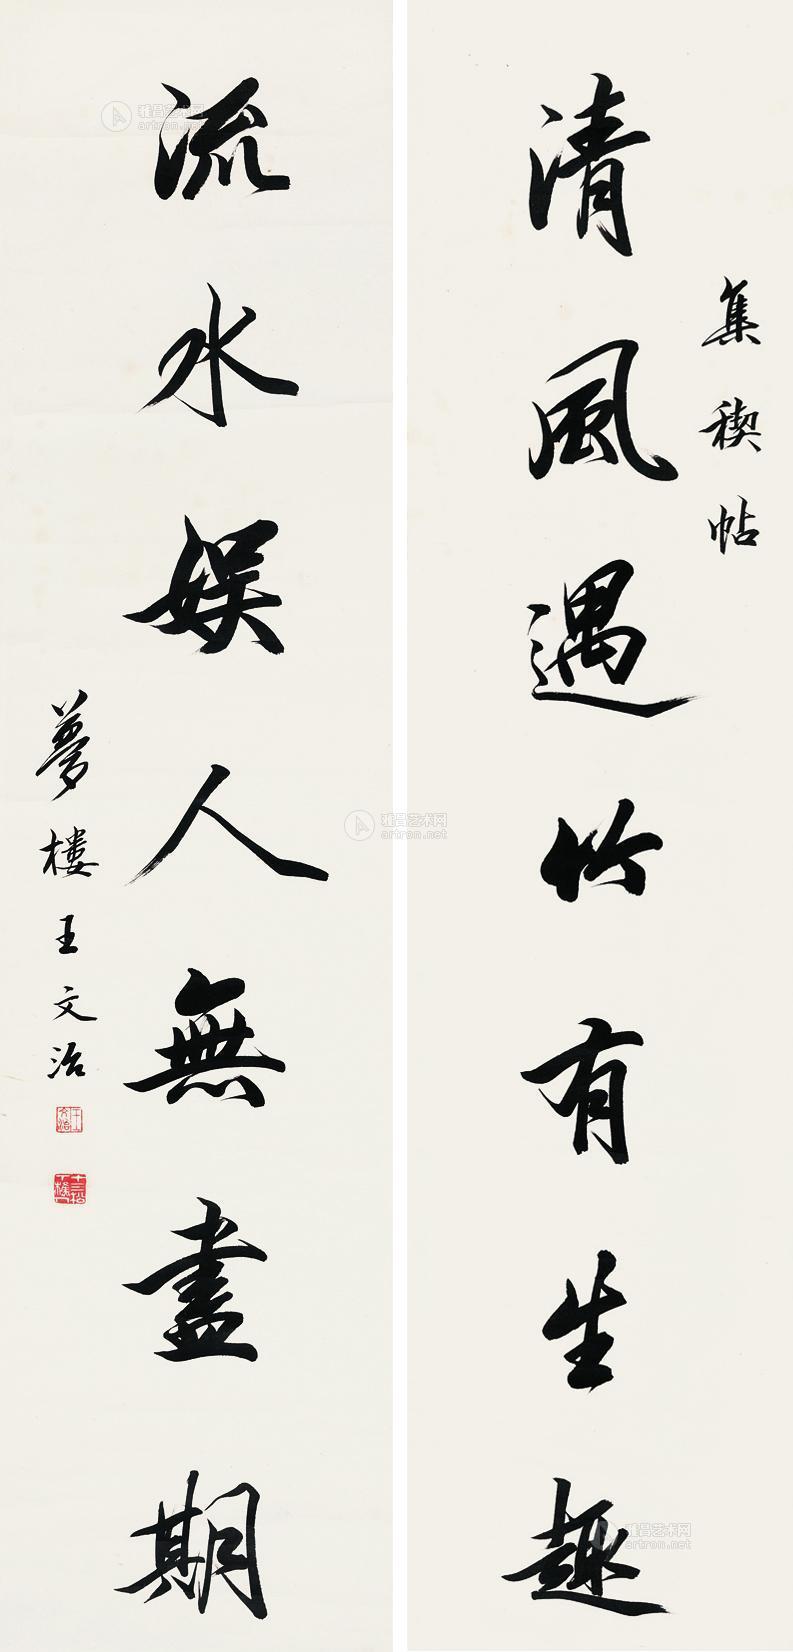 集稧帖
清風遇竹有生趣
流水娱人無盡期
夢樓王文治
王文治
雅昌艺术网
artron.net
雅昌艺术网
artron.net
雅昌艺术网
artron.net